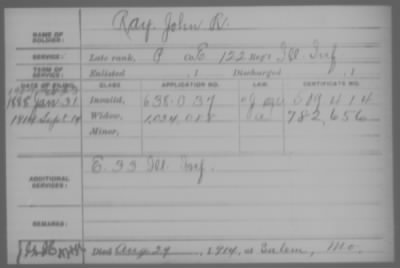 NAME OF SOLDIER: Ray, John R.
SERVICE: Late rank, P Co. E 122 Reg't Ill. Inf.
TERM OF SERVICE: Enlisted , 1 Discharged , 1
DATE OF FILING. CLASS APPLICATION NO. LAW. CERTIFICATE NO.
1888 Jan 31 Invalid, 638.037 419414
1914 Sept 14 Widow, 1,034,018 782,656
Minor,
ADDITIONAL SERVICES: E. 33 Ill. Inf.
REMARKS:
Died Aug 29, 1914, at Salem, Mo.